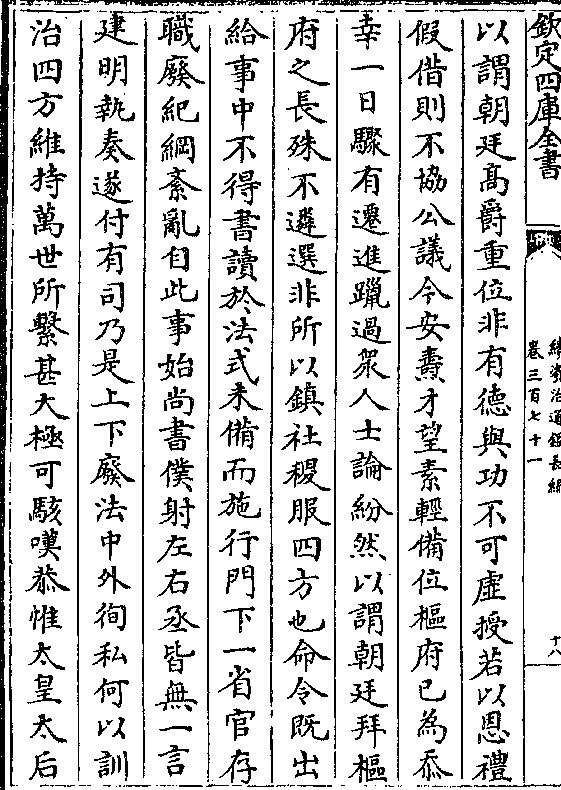 欽定四庫全書
續資治通鑑長編
卷三百七十一
十八
以謂朝廷髙爵重位非有德與功不可虚授若以恩禮
假借則不協公議今安燾才望素輕備位樞府已為忝
幸一日驟有遷進躐過衆人士論紛然以謂朝廷拜樞
府之長殊不遴選非所以鎮社稷服四方也命令既出
給事中不得書讀於法式未備而施行門下一省官存
職廢紀綱紊亂自此事始尚書僕射左右丞皆無一言
建明執奏遂付有司乃是上下廢法中外徇私何以訓
治四方維持萬世所繫甚大極可駭嘆恭惟太皇太后